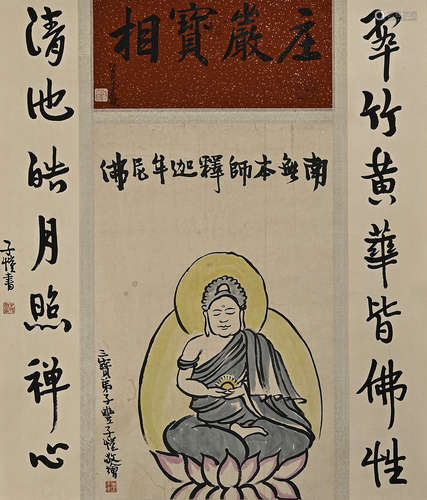 庄嚴寶相
南無本師釋迦牟尼佛
翠竹黄華皆佛性
清池皓月照禪心
子愷書
三寶弟子豐子愷敬繪